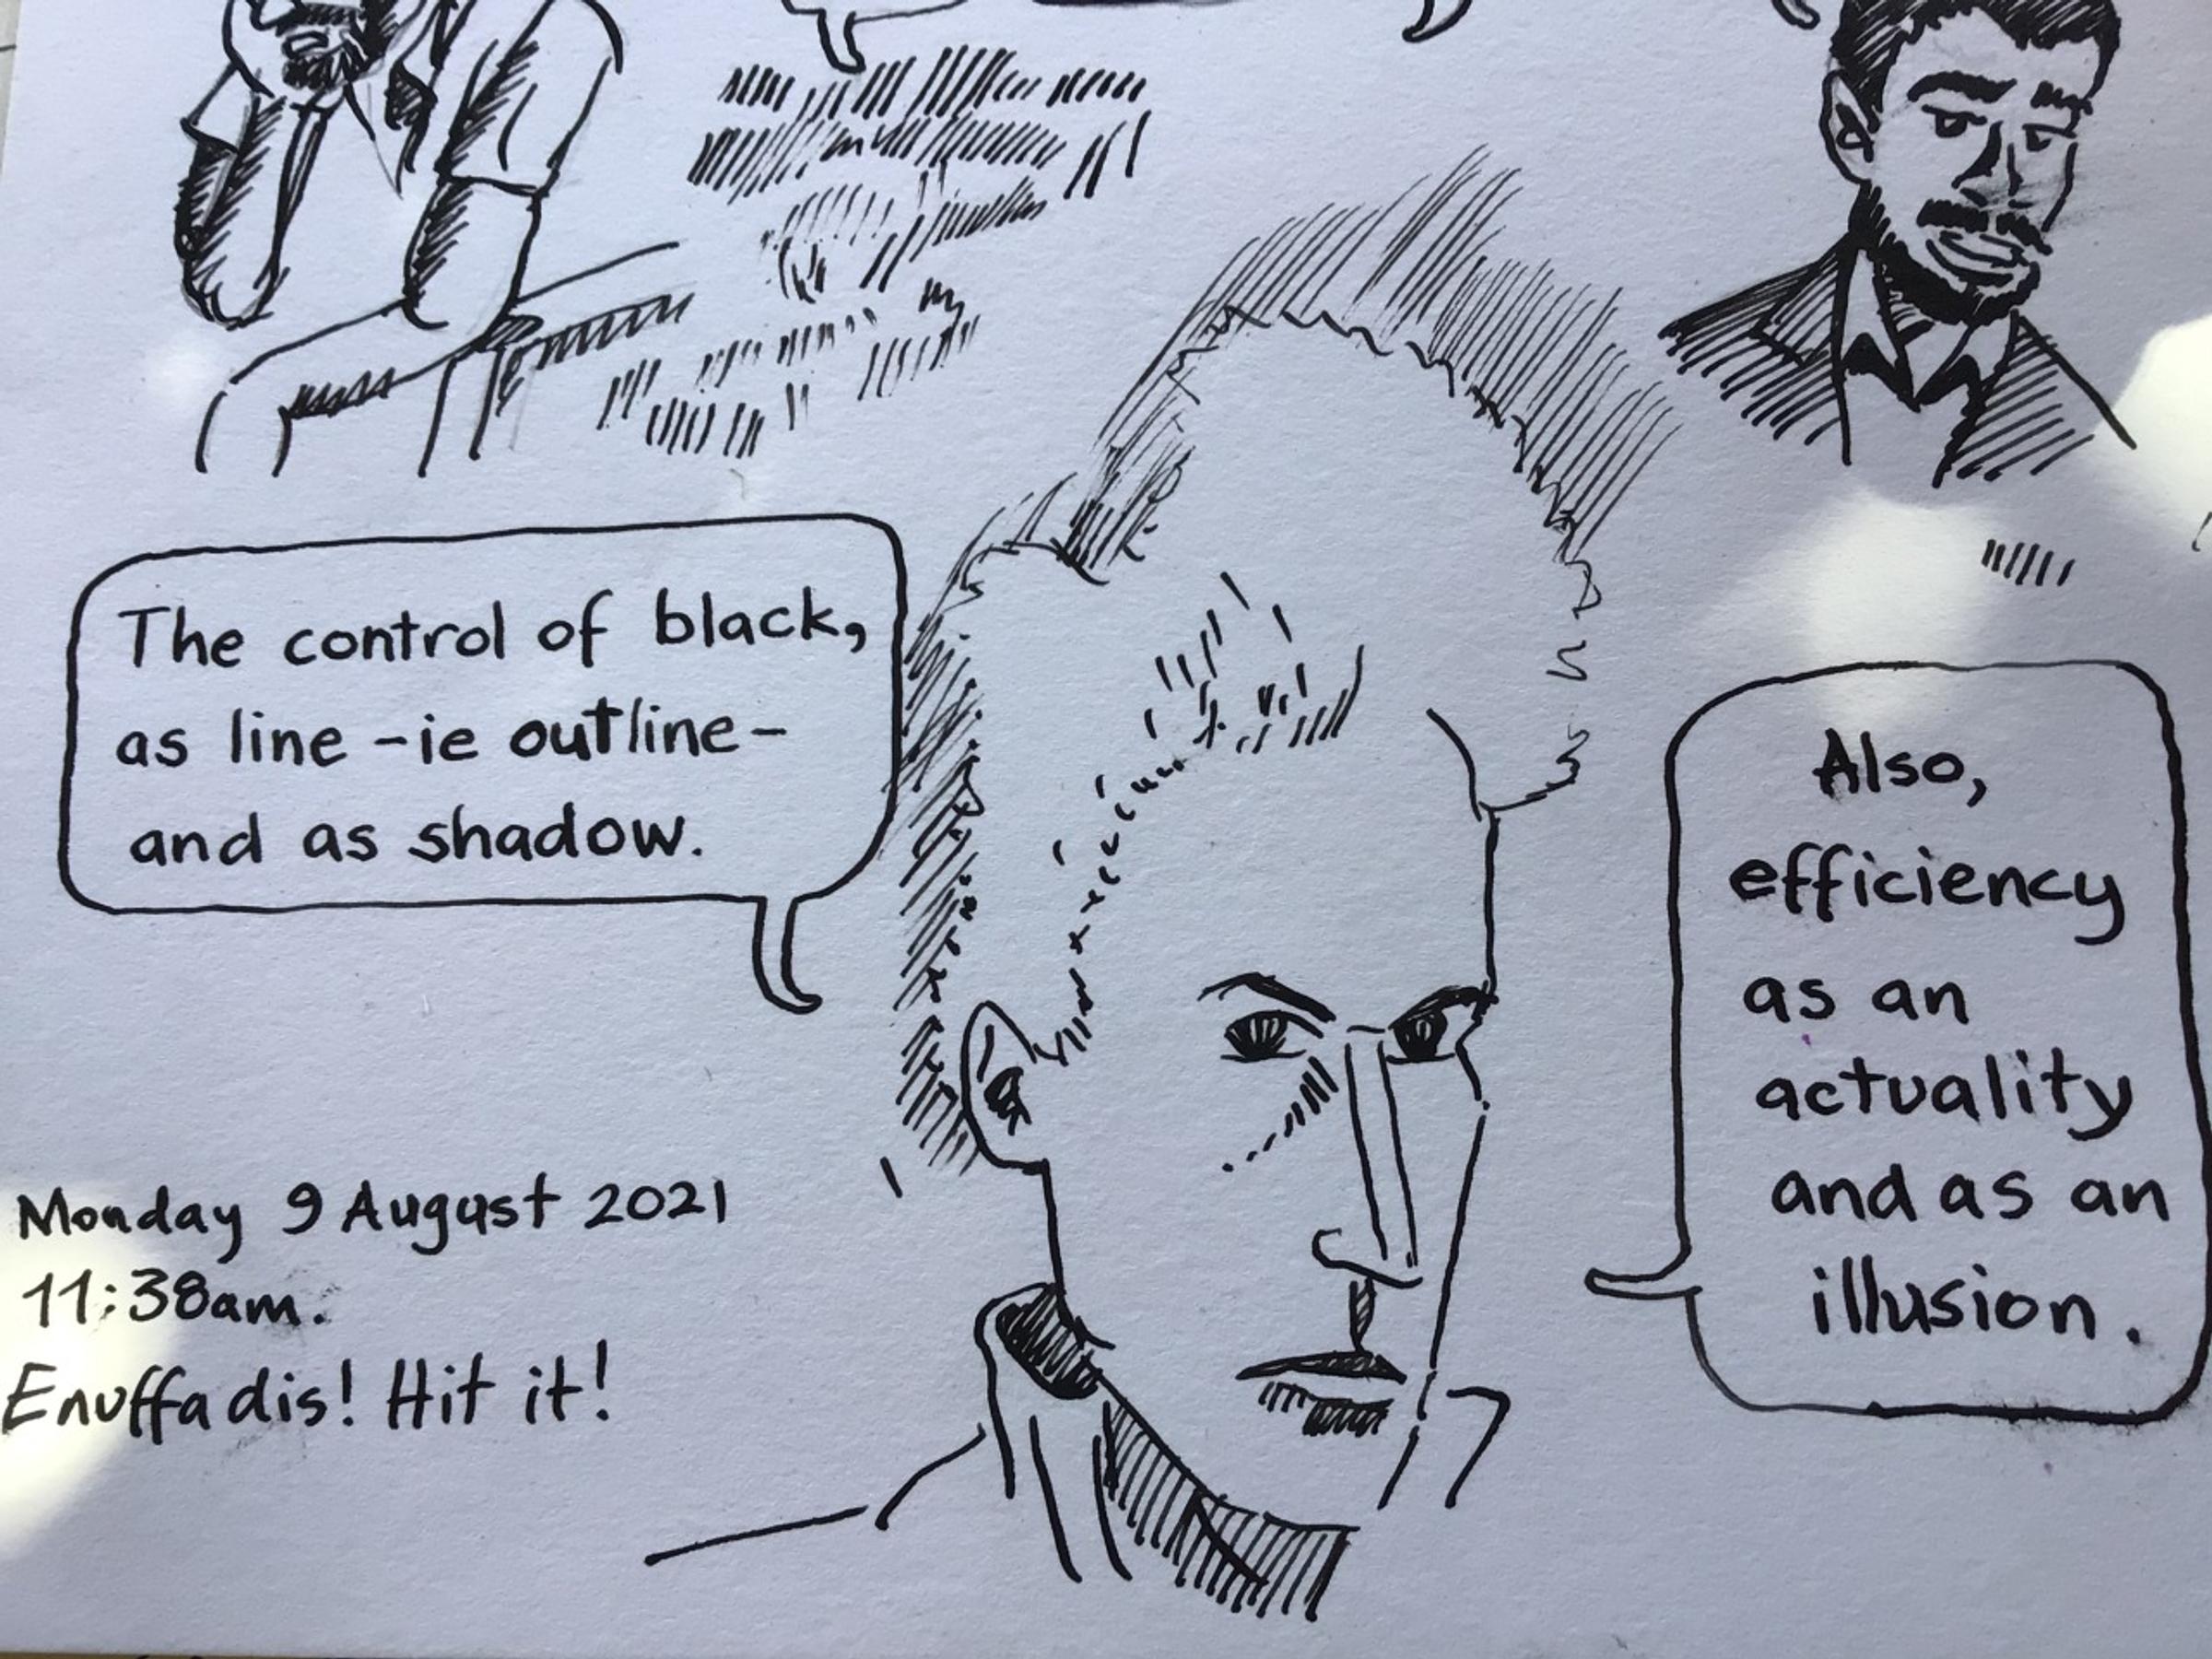 The control of black,
as line -ie outline-
and as shadow.
Also,
efficiency
as an
actuality
and as an
illusion.
Monday 9 August 2021
11:38am.
Enuffadis! Hit it!